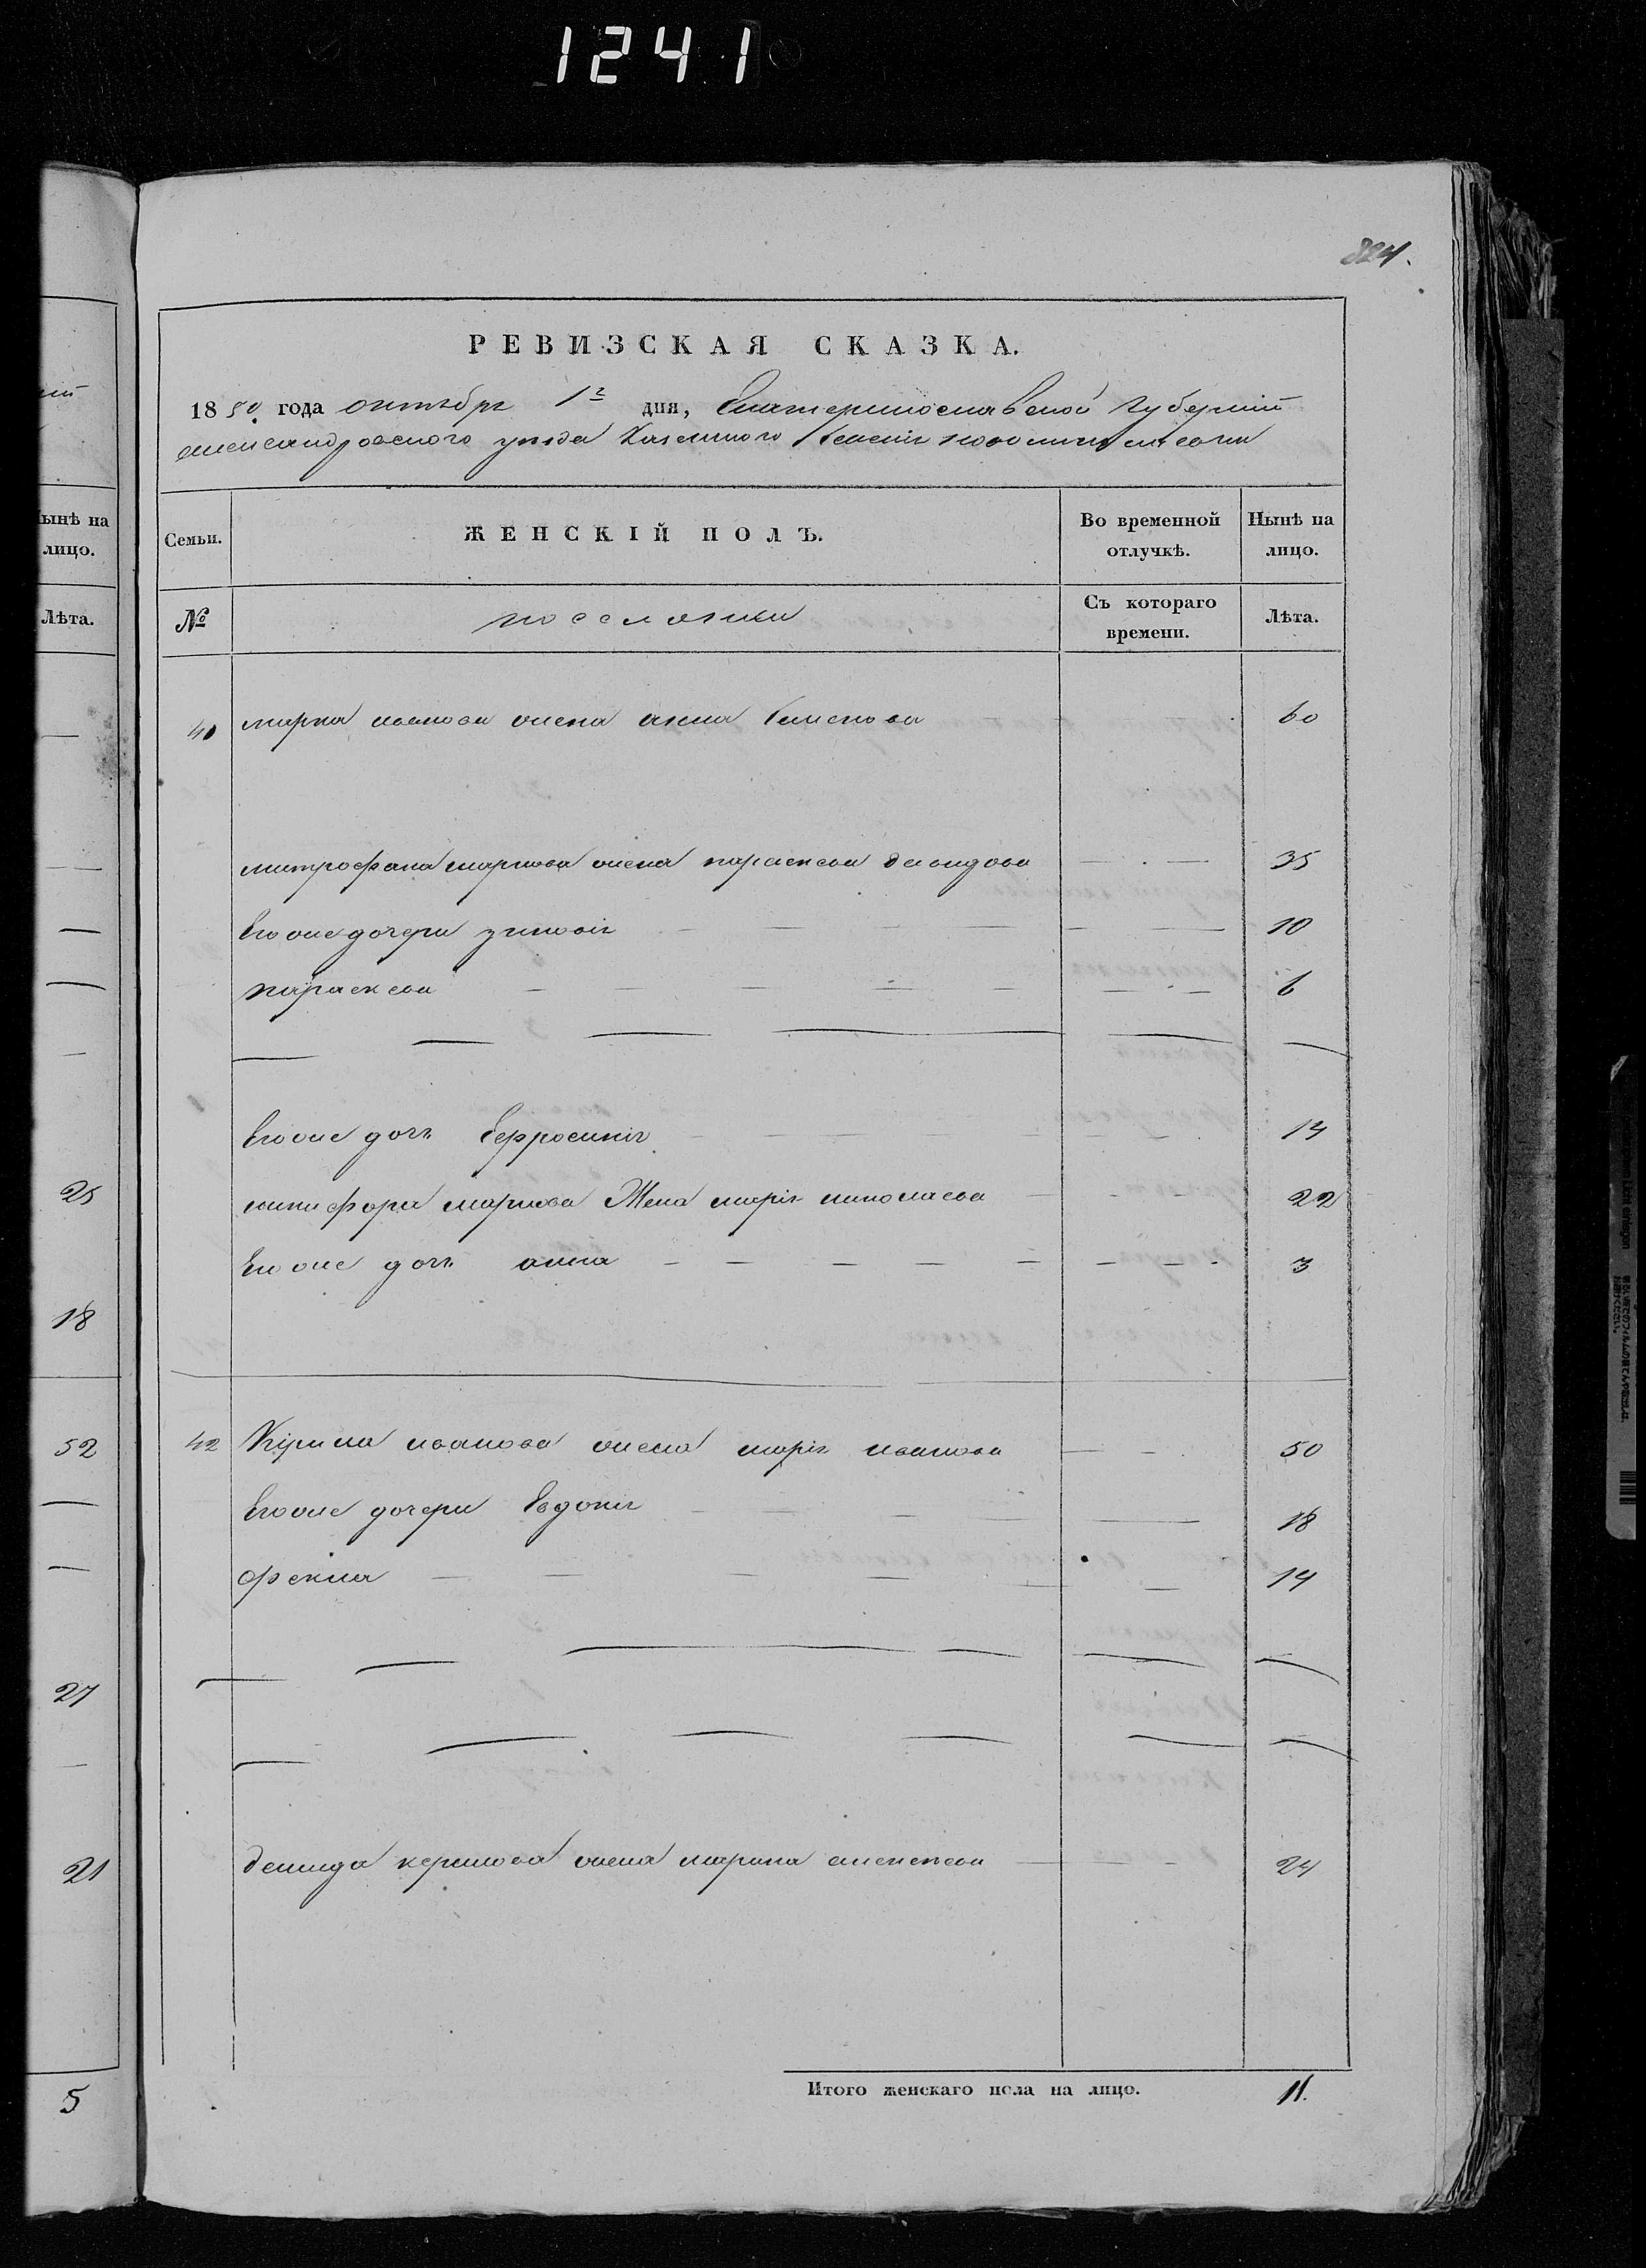 1241
824.
РЕВИЗСКАЯ СКАЗКА.
1850 года октября 1го дня, Екатеринославской Губерниі
александровского уезда Казенного селения
Семьи.
ЖЕНСКІЙ ПОЛЪ.
Во временной отлучкѣ.
Нынѣ на лицо.
№
поселянки
Съ котораго времени.
Лѣта.
марка иванова жена анна Семенова 60
митрофана маркова жена параскева давидова 35
Его же дочери зиновія 10
параскева 6
Его же дочь Ефросинія 14
никифора маркова Жена марія николаева 22
Его же дочь анна 3
42 Кірила иванова жена марія иванова 50
Его же дочери Евдокія 18
фекла 14
демида керилова жена марина алексеева 24
Итого женскаго пола на лицо. 11.
Нынѣ на
лицо.
Лѣта.
25
18
52
27
21
5